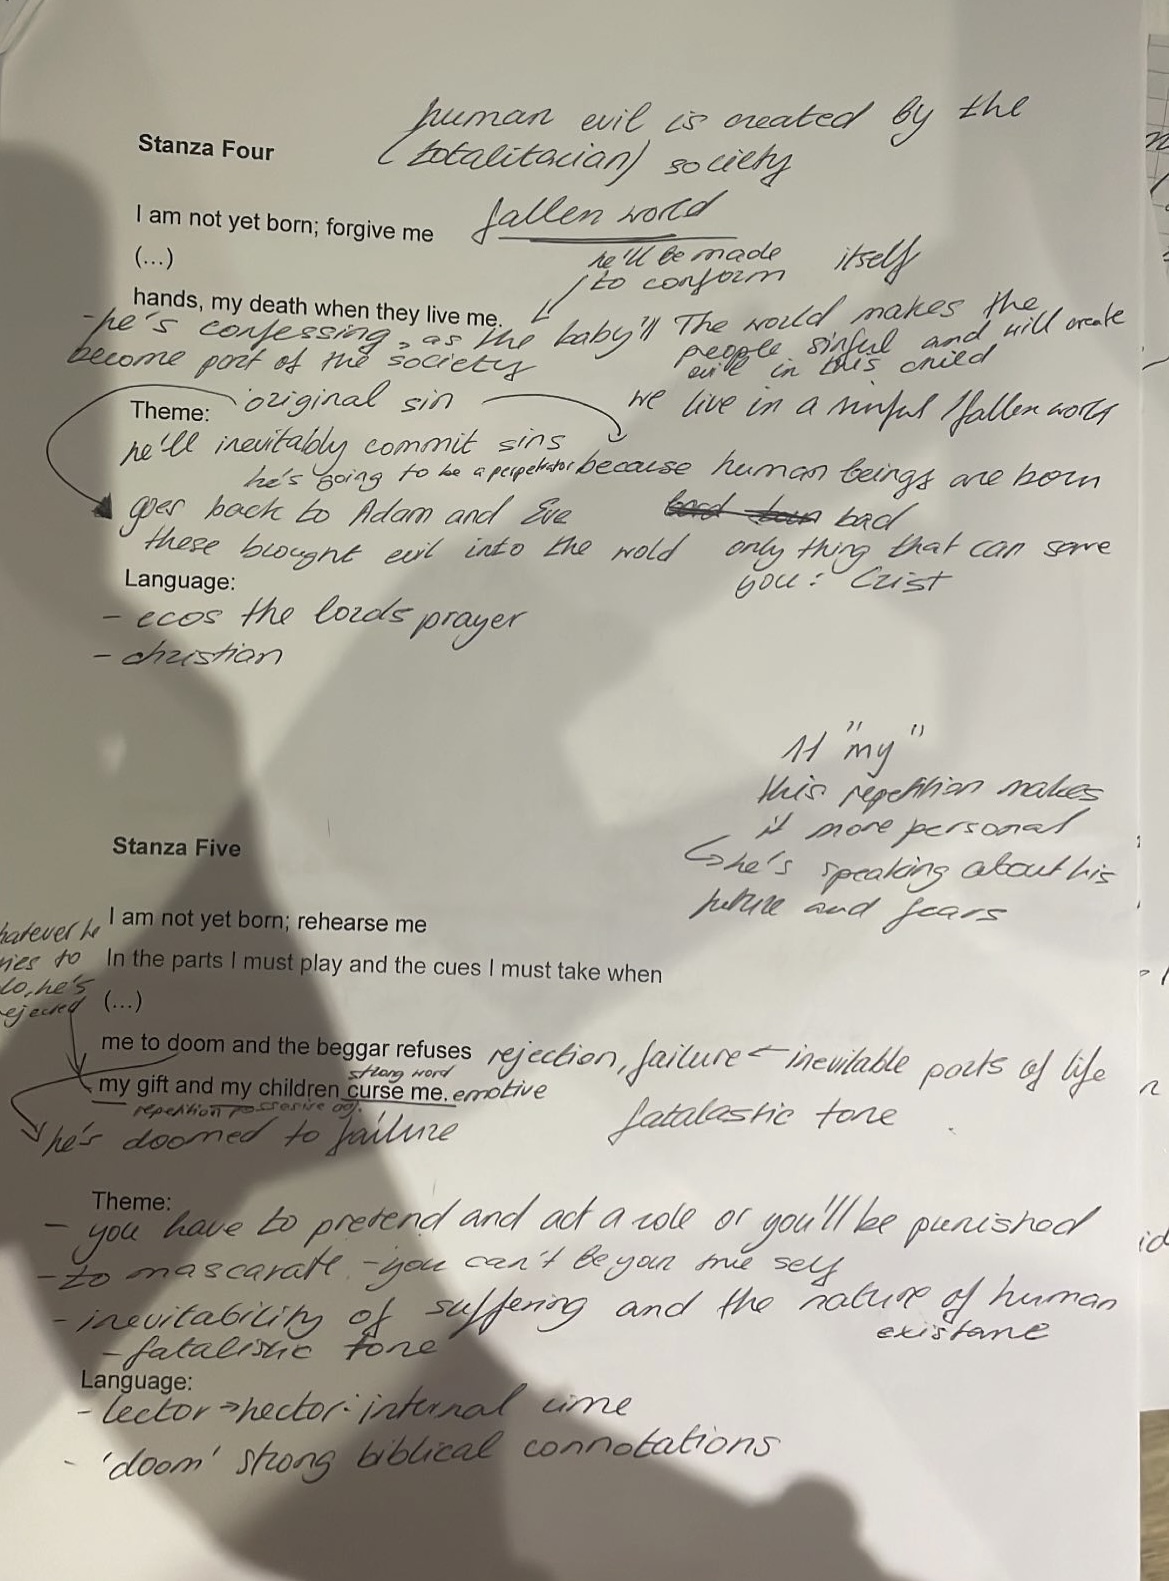 human evil is created by the
(totalitacian) society
Stanza Four
I am not yet born; forgive me
fallen world
(...)
he'll be made
to conform
itself
hands, my death when they live me.
- he's confessing, as the baby'll
become part of the society
The world makes the
people sinful and will create
evil in this child
Theme:
original sin
we live in a sinful / fallen world
he'll inevitably commit sins
he's going to be a perpetrator
because human beings are born
bad
goes back to Adam and Eve
these brought evil into the wold
only thing that can save
you: Crist
Language:
- ecos the lords prayer
- christian
"my"
this repetition makes
it more personal
he's speaking about his
future and fears
Stanza Five
I am not yet born; rehearse me
hatever he
ries to
do, he's
ejected
In the parts I must play and the cues I must take when
(...)
me to doom and the beggar refuses
rejection, failure ← inevitable parts of life
strong word
my gift and my children curse me.
emotive
repetition possesive adj.
fatalastic tone
he's doomed to failure
Theme:
- you have to pretend and act a role or you'll be punished
- to mascarate - you can't be your true self
- inevitability of suffering and the nature of human
existane
- fatalistic tone
Language:
- lector → hector: internal rime
- 'doom' strong biblical connotations